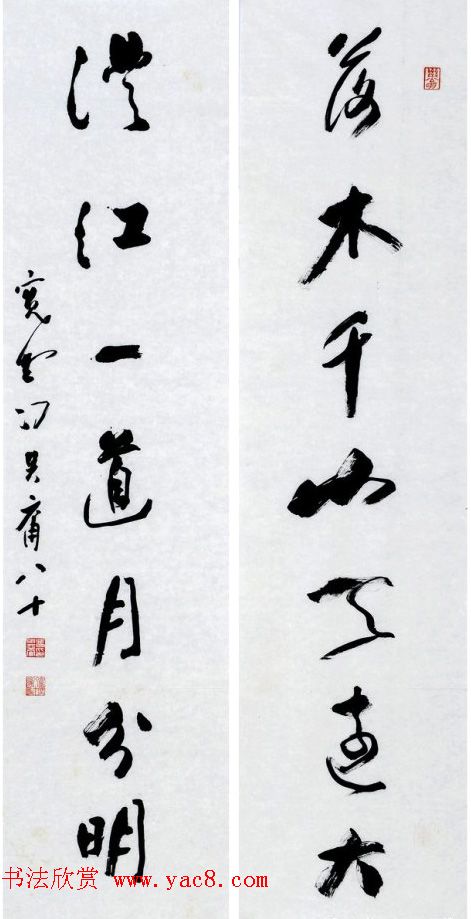 落木千山天遠大
澄江一道月分明
宽堂冯其庸八十
书法欣赏 www.yac8.com